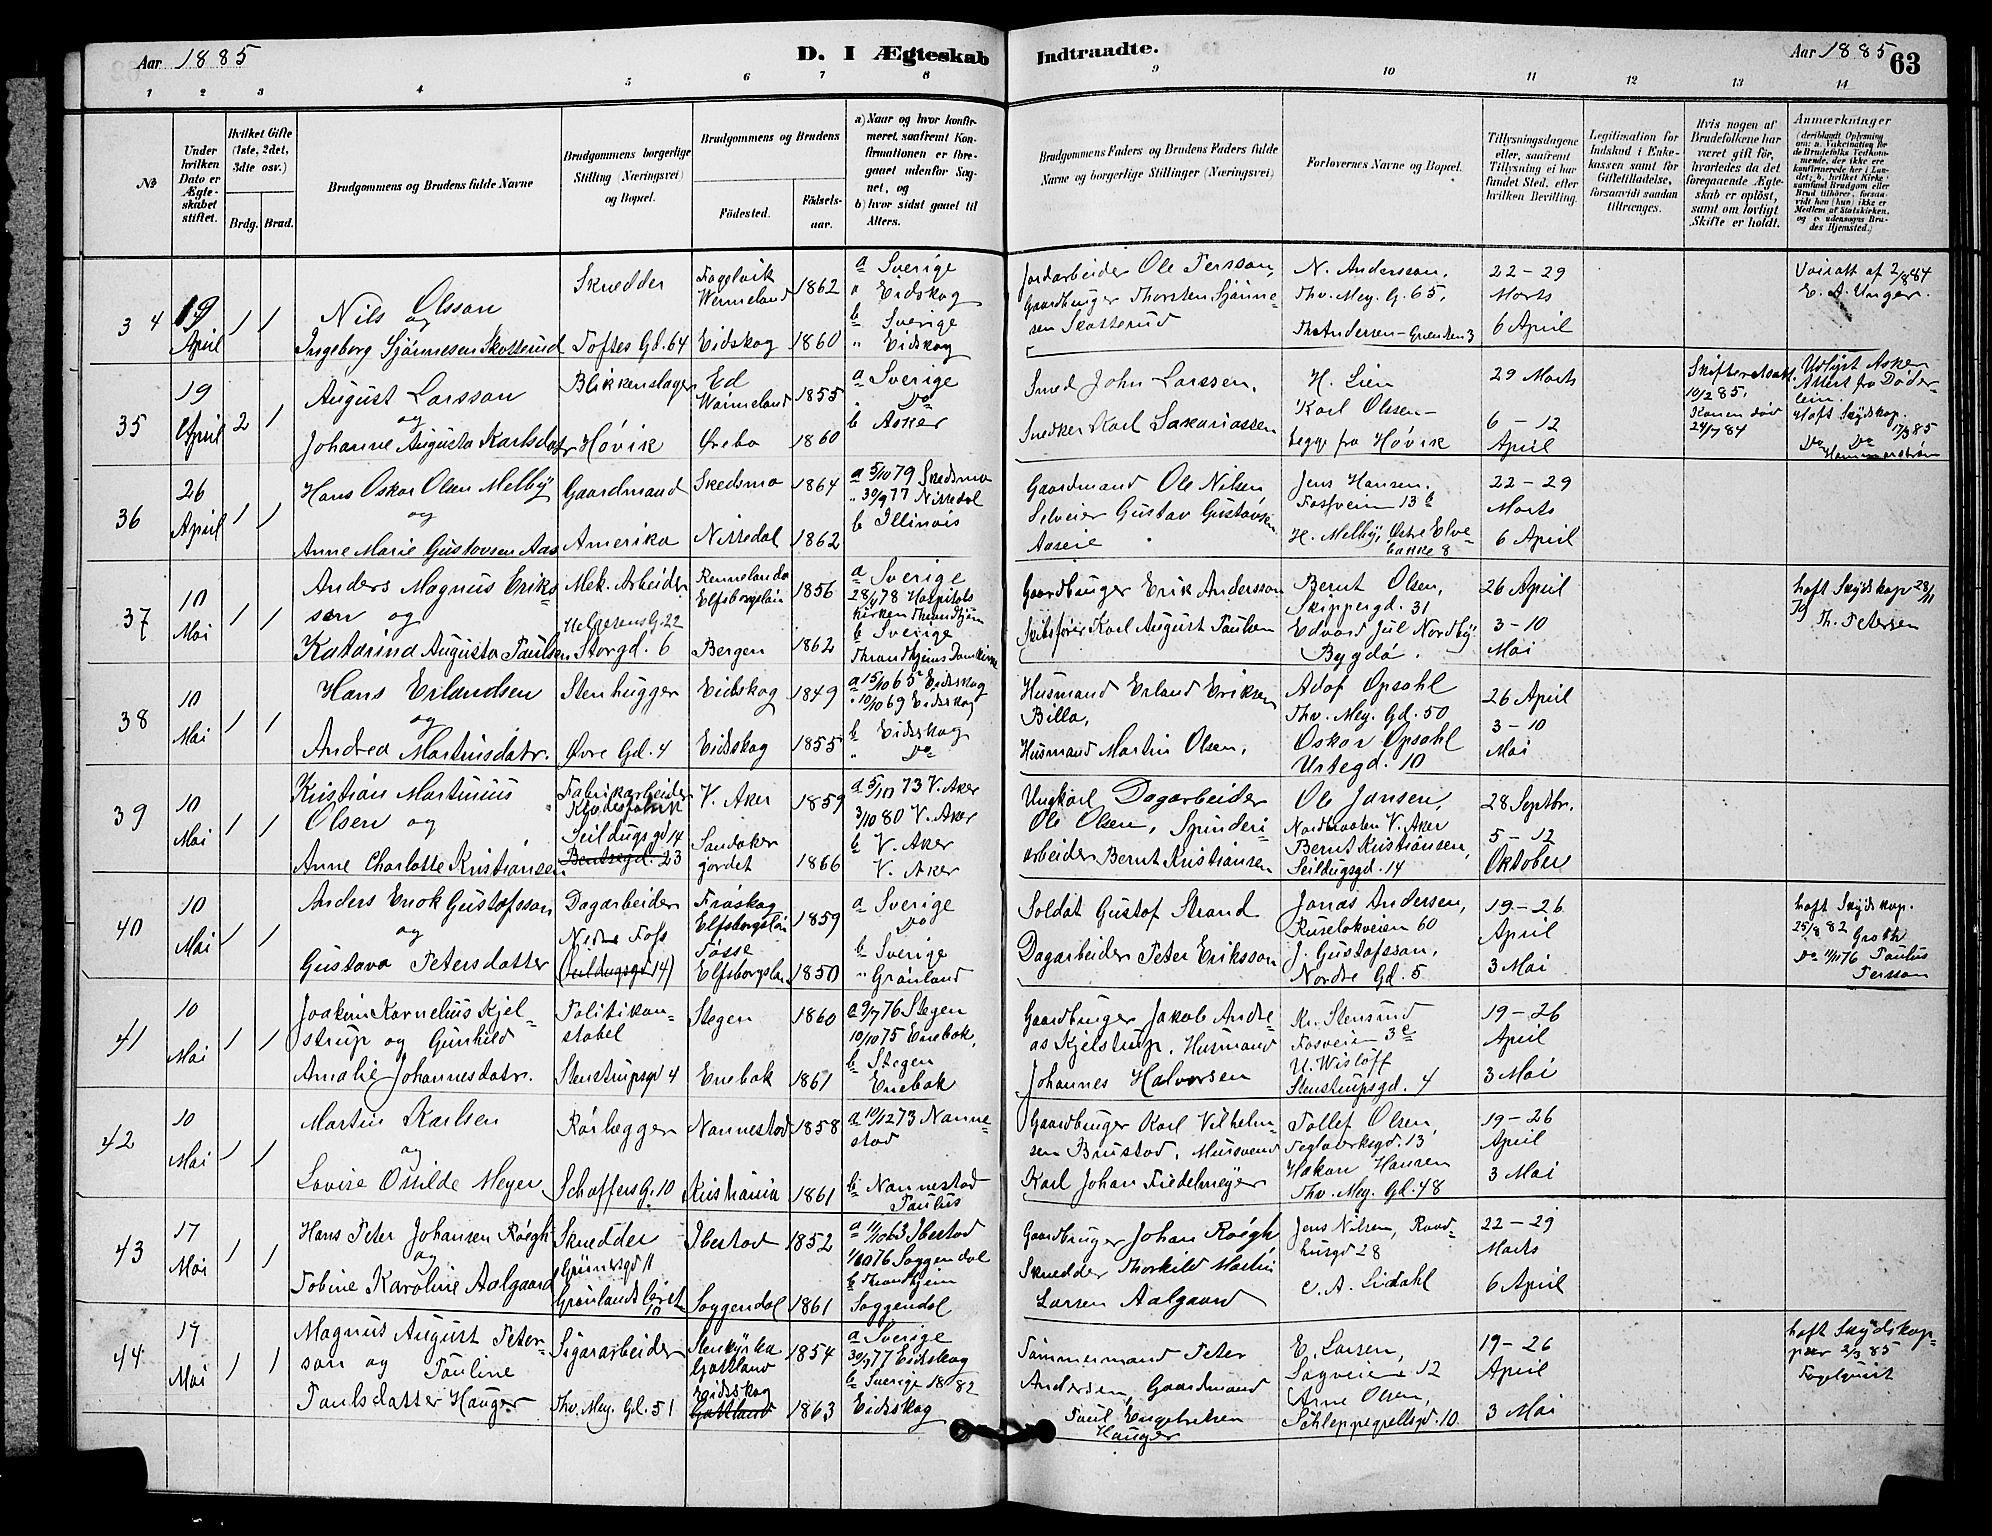 Aar 1885
D. I Ægteskab
Indtraadte.
Aar 1885
63
1 2 3 4 5 6 7 8 9 10 11 12 13 14
№
Under hvilken Dato er Ægteskabet stiftet.
Hvilket Gifte (1ste, 2det, 3dte osv.)
Brdg. Brud.
Brudgommens og Brudens fulde Navne
Brudgommens borgerlige Stilling (Næringsvei) og Bopæl.
Brudgommens og Brudens
Födested.
Födselsaar.
a) Naar og hvor konfirmeret, saafremt Konfirmationen er foregaaet udenfor Sognet, og
b) hvor sidst gaaet til Alters.
Brudgommens Faders og Brudens Faders fulde Navne og borgerlige Stillinger (Næringsvei)
Forlovernes Navne og Bopæl.
Tillysningsdagene eller, saafremt Tillysning ei har fundet Sted, efter hvilken Bevilling.
Legitimation for Indskud i Enkekassen samt for Giftetilladelse, forsaavidt saadan tiltrænges.
Hvis nogen af Brudefolkene har været gift før, hvorledes da det foregaaende Ægteskab er opløst, samt om lovligt Skifte er holdt.
Anmærkninger
34
19 April
1 1
Nils Olsson
og
Ingeborg Sjønnesen Skotterud
Skrædder
Toftes Gd. 64
Fogelvik Wermeland 1862
Eidskog 1860
a Sverige
" Eidskog
b Sverige
" Eidskog
Jordarbeider Ole Persson,
Gaardbruger Thorsten Sjønne-
sen Skotterud
N. Andersson,
Thv. Mey. G. 65,
Th. Andersen - Grændsen 3
22-29
Marts
6 April
E. A. Unger.
35
19 April
2 1
August Larsson
og
Johanne Augusta Karlsdatr
Blikkenslager
Høvik
Ed
Wärmeland 1855
Ørebo 1860
a Sverige
" Do
b Asker
Smed John Larssen,
Snedker Karl Sakariassen
H. Lien
Karl Olssen -
begge fra Høvik
29 Marts
6-12
April
Skifteretsatt.
10/2 85,
Konen död
24/7 84
Udlyst Asker
Attest fra Döder-
lein.
Haft Skydskop.
Do Do 17/3 85
36
26 April
1 1
Hans Oskar Olsen Melby
og
Anne Marie Gustovsen Aas
Gaardmand
Amerika
Skedsmo 1864
Nittedal 1862
a 5/10 79 Skedsmo
" 30/9 77 Nittedal
b Illinois
Gaardmand Ole Nilsen
Selveier Gustav Gustavsen
Aaseie
Jens Hansen,
Fossveien 13 b
H. Melby, Østre Elve-
bakke 8
22-29
Marts
6 April
37
10 Mai
1 1
Anders Magnus Eriks-
son og
Katarina Augusta Paulsen
Mek. Arbeider
Helgesens G. 22
Storgd. 6
Rennelanda
Elfsborgslän 1856
Bergen 1862
a Sverige
28/4 78 Hospitals
kirken Throndhjem
b Sverige
Throndhjems Domkirke
Gaardbruger Erik Andersson
Skibsfører Karl August Paulsen
Bernt Olsen,
Skippergd. 31
Edvard Jul Nordby
Bygdø.
26 April
3-10
Mai
haft Skydskop 28/11
Th. Petersen
38
10 Mai
1 1
Hans Erlandsen
og
Andrea Martinsdatr.
Stenhugger
Øvre Gd. 4
Eidskog 1849
Eidskog 1855
a 15/10 65 Eidskog
" 10/10 69 Eidskog
b Eidskog
" Do
Husmand Erland Eriksen
Billa,
Husmand Martin Olsen,
Adof Opsahl
Thv. Mey. Gd. 50
Oskar Opsahl
Urtegd. 10
26 April
3-10
Mai
39
10 Mai
1 1
Kristian Martinius
Olsen og
Anne Charlotte Kristiansen
Fabrikarbeider
Seildugsgd 14
Bentsegd. 23
V. Aker 1859
Sandaker
jordet 1866
a 5/10 73 V. Aker
3/10 80 V. Aker
b V. Aker
V. Aker
Ungkarl Dagarbeider
Ole Olsen, Spinderi-
arbeider Bernt Kristiansen
Ole Jansen,
Nordbraaten V. Aker
Bernt Kristiansen,
Seildugsgd. 14
28 Septbr.
5-12
Oktober
40
10 Mai
1 1
Anders Enok Gustafsson
og
Gustava Petersdatter
Dagarbeider
Nedre Foss
(Seildugsgd 14)
Fröskog
Elfsborgslän 1859
Tösse
Elfsborgslän 1850
a Sverige
Do
b Sverige
" Grønland
Soldat Gustof Strand
Dagarbeider Peter Eriksson
Jonas Andersen,
Ruseløkveien 60
J. Gustofsson,
Nordre Gd. 5
19-26
April
3 Mai
haft Skydskop.
25/8 82 Groth
Do 1/11 76 Paulus
Persson
41
10 Mai
1 1
Joakim Kornelius Kjel-
strup og Gunhild
Amalie Johannesdatr.
Politikon-
stabel
Stenstrupsgd 4
Stegen 1860
Enebak 1861
a 9/7 76 Stegen
10/10 75 Enebak,
b Stegen
Enebak
Gaardbruger Jakob Andre-
as Kjelstrup, Husmand
Johannes Halvorsen
Kr. Stensrud
Fosveien 3 c
U. Wisløff
Stenstrupsgd. 4
19-26
April
3 Mai
42
10 Mai
1 1
Martin Karlsen
og
Lovise Osvilde Meyer
Rørlægger
Schoffers G. 10
Nannestad 1858
Kristiania 1861
a 10/12 73 Nanne-
stad
b Nannestad
Paulus
Gaardbruger Karl Vilhelm-
sen Brustad, Mursvend
Karl Johan Fiedelmeyer
Tollef Olsen,
Teglverksgd. 13
Hakon Hansen
Thv. Mey. Gd. 48
19-26
April
3 Mai
43
17 Mai
1 1
Hans Peter Johansen Röegh
og
Tobine Karoline Aalgaard
Skrædder
Grünersgd 11
Grønlandsleret 10
Ibestad 1852
Soggendal 1861
a 11/10 63 Ibestad
1/10 76 Soggendal
b Throndhjem
Soggendal
Gaardbruger Johan Röegh
Skrædder Thorkild Martin
Larsen Aalgaard
Jens Nilsen, Raad-
husgd 28
C. A. Lidahl
22-29
Marts
6 April
44
17 Mai
1 1
Magnus August Peter-
son og Pauline
Paulsdatter Hauger
Sigararbeider
Thv. Mey. Gd. 51
Stenkyrka
Gottland 1854
Eidskog
Gottland 1863
a Sverige
30/9 77 Eidskog
b Sverige 1882
Eidskog
Tømmermand Peter
Andersen, Gaardmand
Paul Engebretsen
Hauger
E. Larsen,
Sagveien 12
Arne Olsen,
Schleppegrellsgd. 10
19-26
April
3 Mai
haft Skydskop-
per 2/3 85
Fogelquist